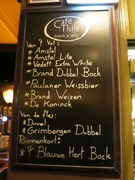 Café
Thijs
Van 't Vat:
* Amstel
* Amstel Lite
* Wedett Extra White
* Brand Dubbel Bock
* Paulaner Weissbier
* Brand Weizen
* De Koninck
Van de fles:
* Duvel
* Grimbergen Dubbel
Binnenkort:
* 't Blauwe Hert Bock